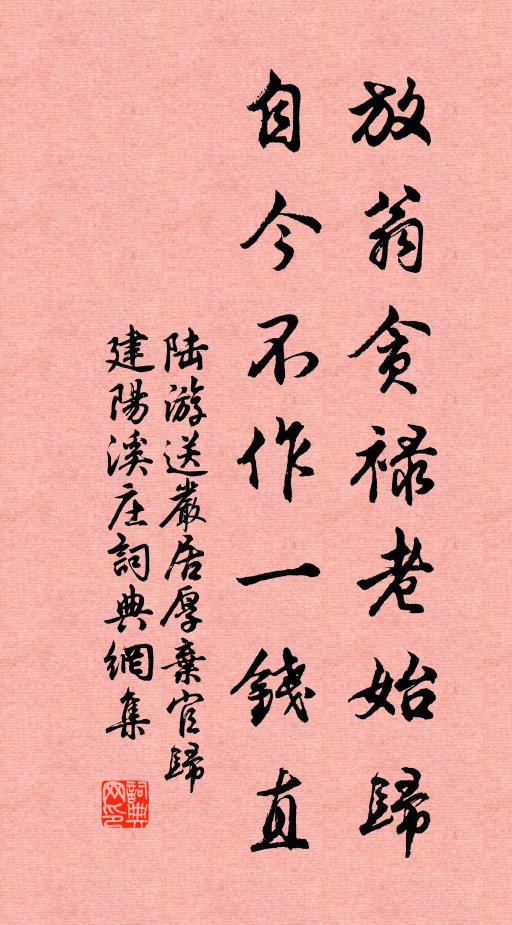 放翁貪祿老始歸
自今不作一錢直
陸游送嚴居厚棄官歸
建陽溪庄詞典網集
詞典网印